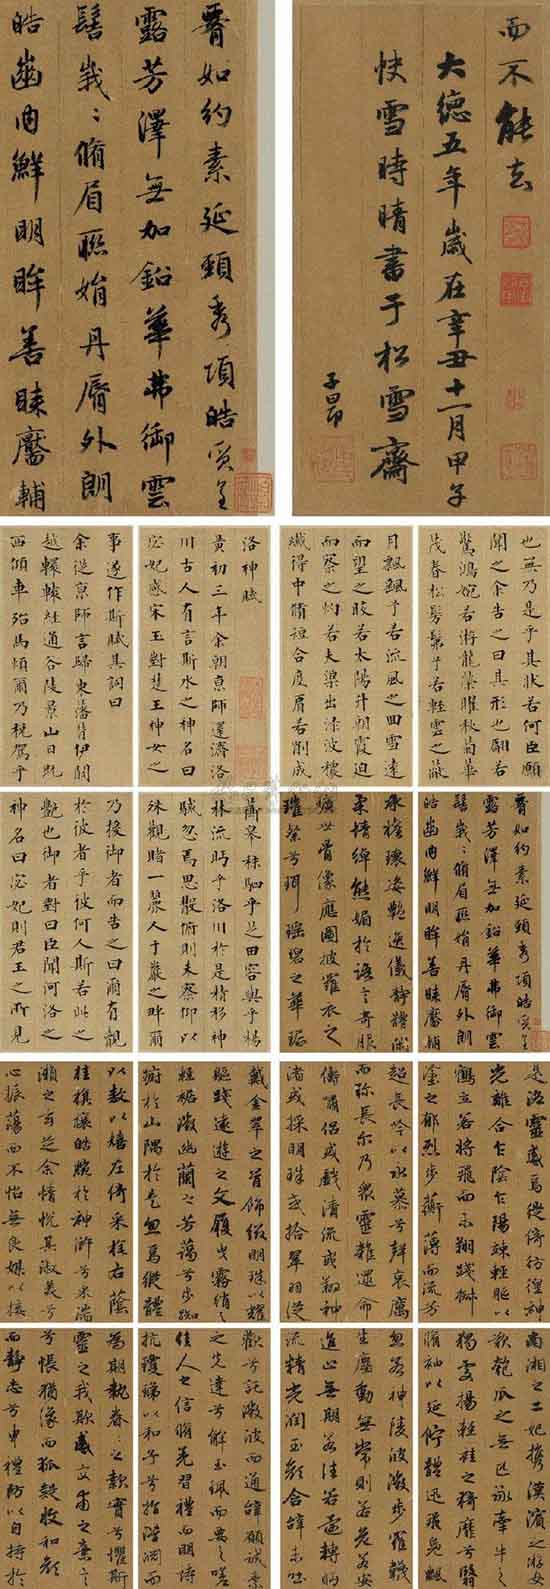 腰如約素延頸秀項皓質呈
露芳澤無加鉛華弗御雲
髻峩々脩眉聯娟丹脣外朗
皓齒內鮮明眸善睞靨輔
而不能去
大德五年歲在辛丑十一月甲子
快雪時晴書于松雪齋
子昂
洛神賦
黃初三年余朝京師還濟洛
川古人有言斯水之神名曰
宓妃感宋玉對楚王神女之
事遂作斯賦其詞曰
余從京師言歸東藩背伊闕
越轘轅經通谷陵景山日既
西傾車殆馬煩爾乃稅駕乎
蘅皋秣駟乎芝田容與乎楊
林流眄乎洛川於是精移神
駭忽焉思散俯則未察仰以
殊觀睹一麗人于巖之畔爾
乃援御者而告之曰爾有覿
於彼者乎彼何人斯若此之
艷也御者對曰臣聞河洛之
神名曰宓妃則君王之所見
也無乃是乎其狀若何臣願
聞之余告之曰其形也翩若
驚鴻婉若游龍榮曜秋菊華
茂春松髣髴兮若輕雲之蔽
月飄颻兮若流風之回雪遠
而望之皎若太陽升朝霞迫
而察之灼若夫渠出淥波穠
纖得中脩短合度肩若削成
腰如約素延頸秀項皓質呈
露芳澤無加鉛華弗御雲
髻峩々脩眉聯娟丹脣外朗
皓齒內鮮明眸善睞靨輔
承權瓌姿艷逸儀靜體閑
柔情綽態媚於語言奇服
曠世骨像應圖披羅衣之
璀粲兮珥瑤碧之華琚
戴金翠之首飾綴明珠以耀
軀踐遠遊之文履曳霧綃之
輕裾微幽蘭之芳藹兮步踟
躕於山隅於是忽焉縱體
以敖以嬉左倚采旄右蔭
桂旗攘皓腕於神滸兮采湍
瀨之玄芝余情悅其淑美兮
心振蕩而不怡無良媒以接
歡兮託微波而通辭願誠素
之先達兮解玉珮而要之嗟
佳人之信脩羌習禮而明詩
抗瓊珶以和予兮指潛淵而
為期執眷々之款實兮懼斯
靈之我欺感交甫之棄言
兮悵猶豫而狐疑收和顏
而靜志兮申禮防以自持於
是洛靈感焉徙倚彷徨神
光離合乍陰乍陽竦輕軀以
鶴立若將飛而未翔踐椒
塗之郁烈步蘅薄而流芳
超長吟以永慕兮聲哀厲
而弥長尔乃衆靈雜遝命
儔嘯侶或戲清流或翔神
渚或採明珠或拾翠羽從
南湘之二妃攜漢濱之游女
歎匏瓜之無匹詠牽牛之
獨處揚輕袿之猗靡兮翳
脩袖以延佇體迅飛鳧飄
忽若神陵波微步羅韈
生塵動無常則若危若安
進止無期若往若還轉眄
流精光潤玉顏含辭未吐